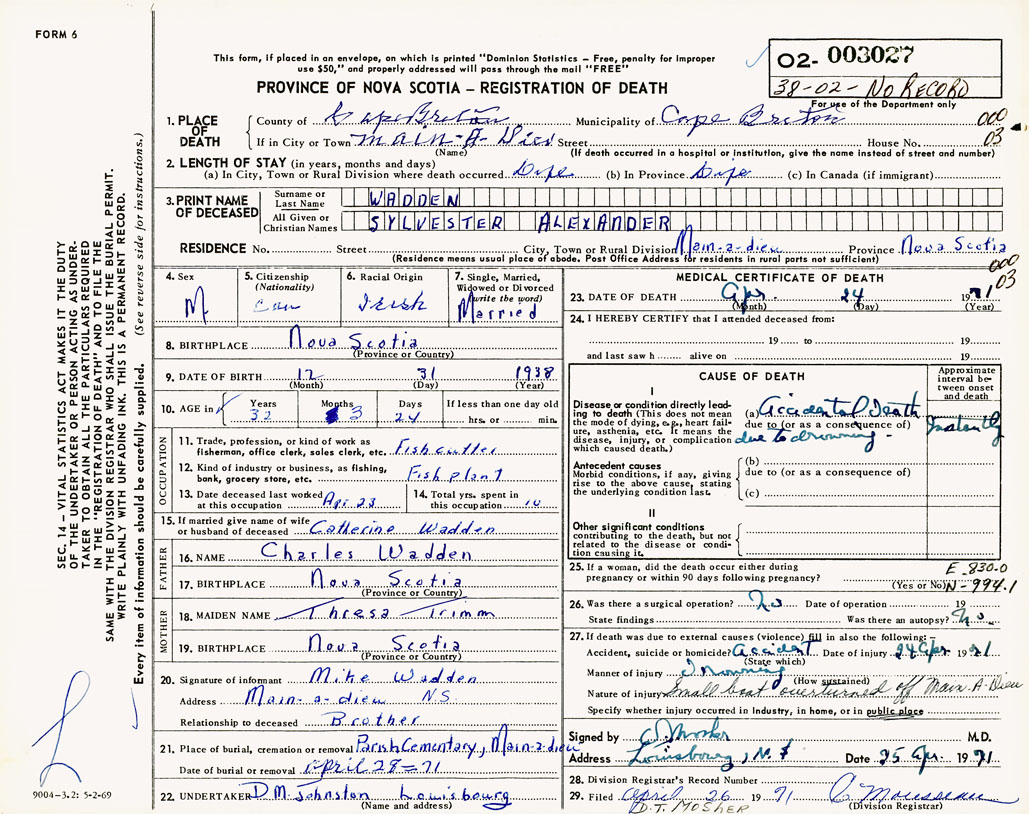 FORM 6
This form, if placed in an envelope, on which is printed "Dominion Statistics – Free, penalty for improper
use $50," and properly addressed will pass through the mail "FREE"
PROVINCE OF NOVA SCOTIA – REGISTRATION OF DEATH
O2- 003027
38-02 – NO RECORD
For use of the Department only
000
03
1. PLACE OF DEATH
County of Cape Breton Municipality of Cape Breton
If in City or Town Main-A-Dieu Street House No.
(Name) (If death occurred in a hospital or institution, give the name instead of street and number)
2. LENGTH OF STAY (in years, months and days)
(a) In City, Town or Rural Division where death occurred Life (b) In Province Life (c) In Canada (if immigrant)
3. PRINT NAME OF DECEASED
Surname or Last Name WADDEN
All Given or Christian Names SYLVESTER ALEXANDER
RESIDENCE No. Street City, Town or Rural Division Main-a-dieu Province Nova Scotia
(Residence means usual place of abode. Post Office Address for residents in rural parts not sufficient)
000
03
4. Sex M
5. Citizenship (Nationality) Can
6. Racial Origin Irish
7. Single, Married, Widowed or Divorced (write the word) Married
8. BIRTHPLACE Nova Scotia
(Province or Country)
9. DATE OF BIRTH 12 31 1938
(Month) (Day) (Year)
10. AGE in Years 32 Months 3 Days 24 If less than one day old hrs. or min.
OCCUPATION
11. Trade, profession, or kind of work as
fisherman, office clerk, sales clerk, etc. Fish cutter
12. Kind of industry or business, as fishing,
bank, grocery store, etc. Fish plant
13. Date deceased last worked at this occupation Apr 23
14. Total yrs. spent in this occupation 10
15. If married give name of wife
or husband of deceased Catherine Wadden
FATHER
16. NAME Charles Wadden
17. BIRTHPLACE Nova Scotia
(Province or Country)
MOTHER
18. MAIDEN NAME Thresa Trimm
19. BIRTHPLACE Nova Scotia
(Province or Country)
20. Signature of informant Mike Wadden
Address Main-a-dieu N.S.
Relationship to deceased Brother
21. Place of burial, cremation or removal Parish Cementary, Main-a-dieu
Date of burial or removal April 28=71
22. UNDERTAKER D.M. Johnston Louisbourg
(Name and address)
MEDICAL CERTIFICATE OF DEATH
23. DATE OF DEATH Apr. 24 1971
(Month) (Day)
24. I HEREBY CERTIFY that I attended deceased from:
19 to
and last saw h alive on 19
CAUSE OF DEATH
Approximate interval between onset and death
I
Disease or condition directly leading to death (This does not mean the mode of dying, e.g., heart failure, asthenia, etc. It means the disease, injury, or complication which caused death.)
(a) Accidental Death
due to (or as a consequence of)
due to drowning -
Instantly
Antecedent causes
Morbid conditions, if any, giving rise to the above cause, stating the underlying condition last.
(b)
due to (or as a consequence of)
(c)
II
Other significant conditions contributing to the death, but not related to the disease or condition causing it.
25. If a woman, did the death occur either during
pregnancy or within 90 days following pregnancy?
(Yes or No)
E-830.0
N-994.1
26. Was there a surgical operation? No Date of operation 19
State findings Was there an autopsy? No
27. If death was due to external causes (violence) fill in also the following:–
Accident, suicide or homicide? Accident Date of injury 24 Apr 1971
(State which)
Manner of injury Drowning
(How sustained)
Nature of injury Small boat overturned off Main-A-Dieu
Specify whether injury occurred in Industry, in home, or in public place
Signed by Mosher M.D.
Address Louisbourg, N.S Date 25 Apr 1971
28. Division Registrar's Record Number
29. Filed April 26 1971 C Mousseau
D.T. MOSHER (Division Registrar)
SEC. 14 – VITAL STATISTICS ACT MAKES IT THE DUTY
OF THE UNDERTAKER OR PERSON ACTING AS UNDER-
TAKER TO OBTAIN ALL THE PARTICULARS REQUIRED
IN THE "REGISTRATION OF DEATH" AND TO FILE THE
SAME WITH THE DIVISION REGISTRAR WHO SHALL ISSUE THE BURIAL PERMIT.
WRITE PLAINLY WITH UNFADING INK. THIS IS A PERMANENT RECORD.
Every item of information should be carefully supplied. (See reverse side for instructions.)
9004-3.2: 5-2-69